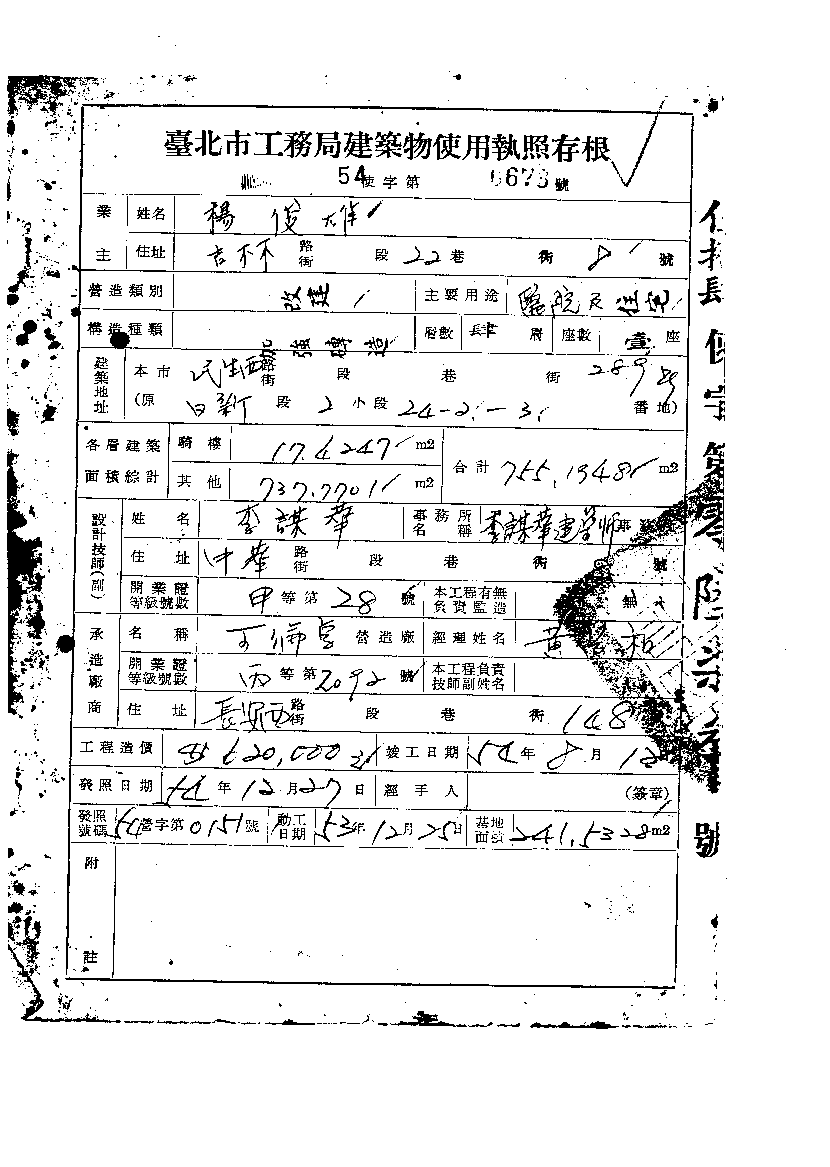 臺北市工務局建築物使用執照存根
54使字第 0673號
業主 姓名 楊俊雄
住址 吉林 路街 段 22巷 街 8 號
營造類別 改建 主要用途 醫院及住宅
構造種類 加強磚造 層數 肆 層 座數 壹 座
建築地址 本市 民生西 路街 段 巷 街 289號
(原 日新 段 2 小段 24-2-3 番地)
各層建築面積綜計 騎樓 17.4247 m2 合計 755.1948 m2
其他 737.7701 m2
設計技師(副) 姓名 李謀華 事務所名稱 李謀華建築師事
住址 中華 路街 段 巷 街 號
開業證等級號數 甲等第28號 本工程有無負責監造 無
承造廠商 名稱 營造廠 經理姓名 黃 柏
開業證等級號數 丙等第2092號 本工程負責技師副姓名
住址 長安西 路街 段 巷 街 148
工程造價 620,000 竣工日期 54年8月12
發照日期 54年12月27日 經手人 (簽章)
發照號碼 54營字第0151號 動工日期 53年12月25日 基地面積 241.5328 m2
附註
使字第零陸柒 號